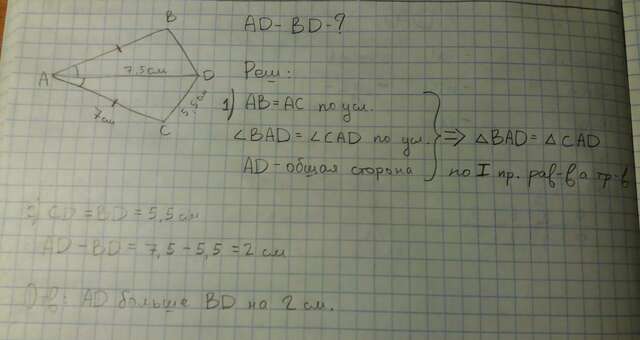 AD-BD-?
B
A
7.5см
D
7см
C
5,5см
Реш:
1) AB=AC по усл.
∠BAD=∠CAD по усл. ⇒ △BAD=△CAD
AD-общая сторона по I пр. рав-ва тр-в
2) CD=BD=5,5см
AD-BD=7,5-5,5=2см
Отв: AD больше BD на 2см.